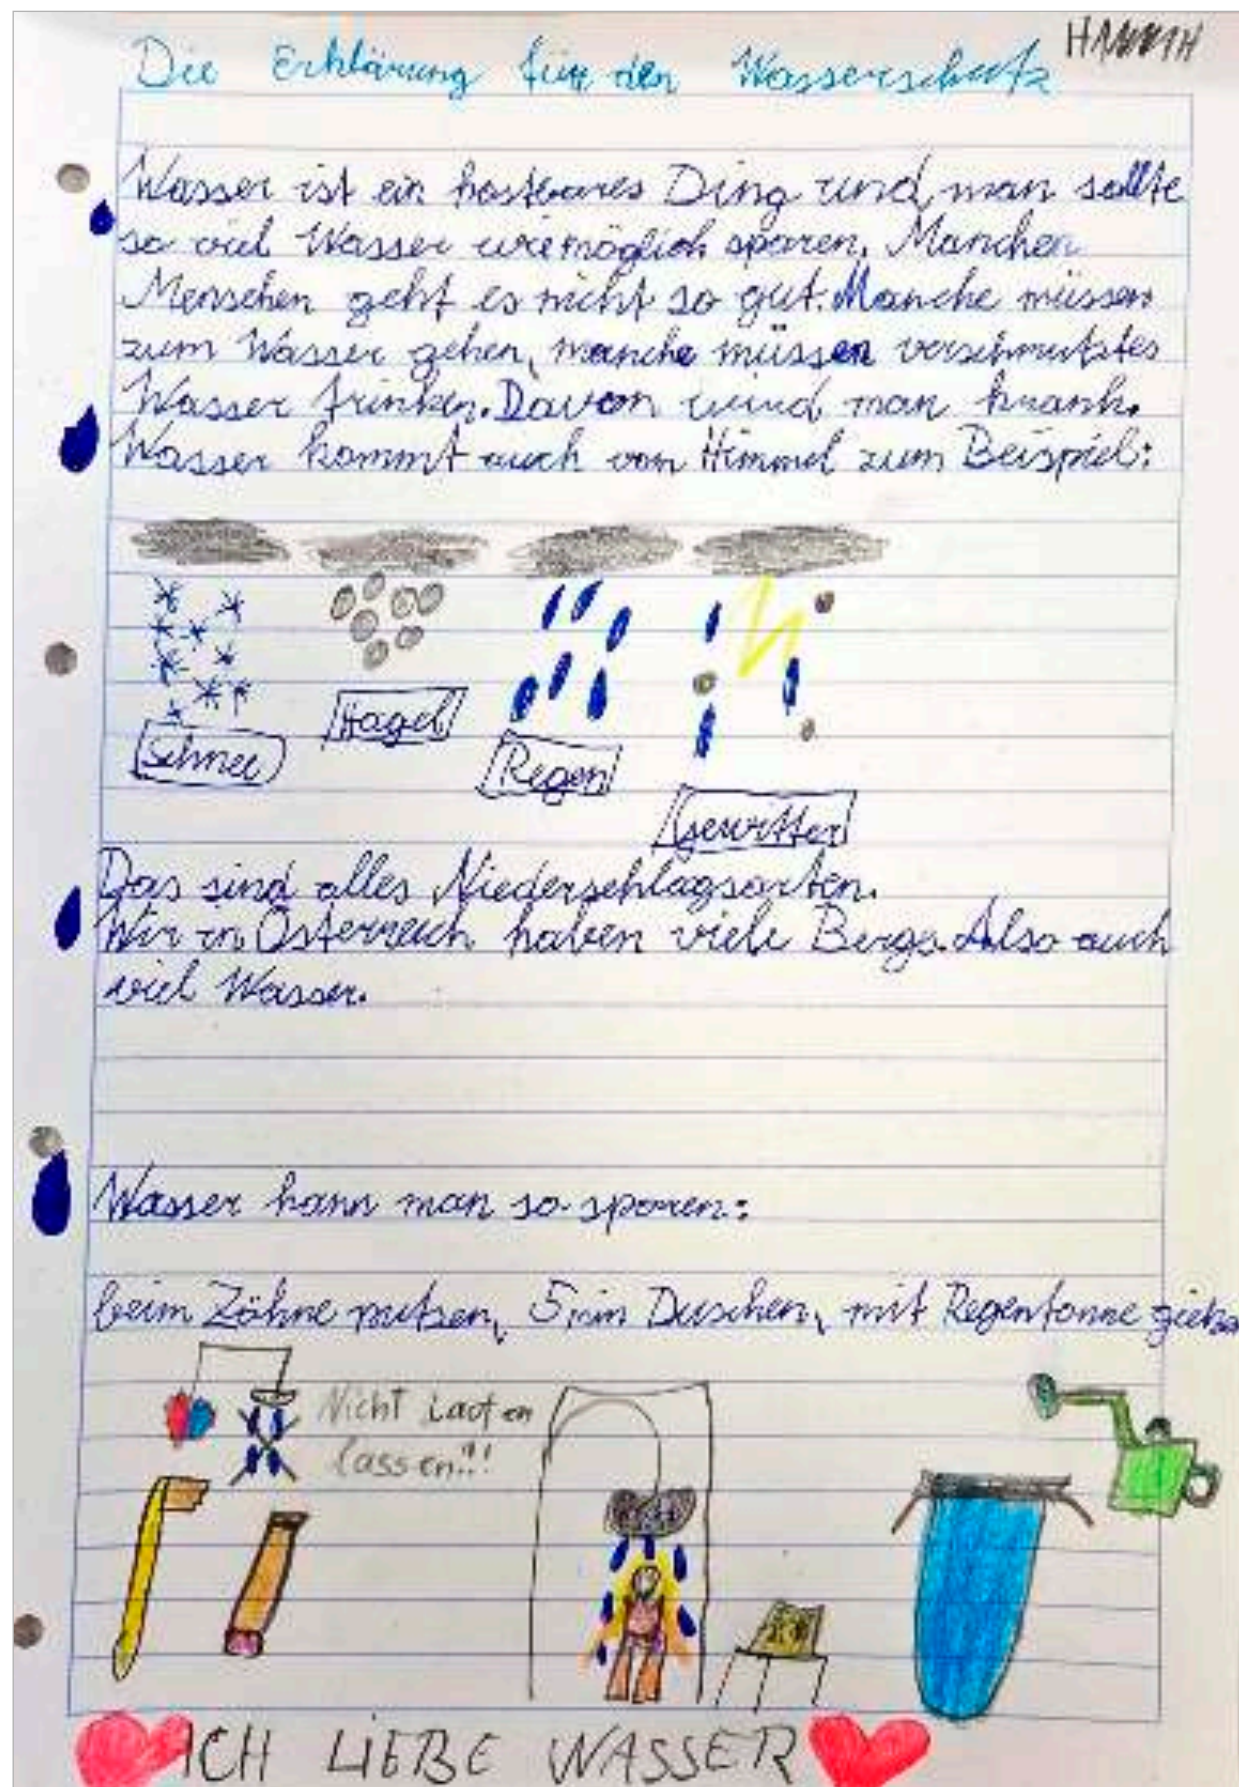 HANNAH
Die Erklärung für den Wasserschutz
Wasser ist ein kostbares Ding und man sollte
so viel Wasser wie möglich sparen. Manchen
Menschen geht es nicht so gut. Manche müssen
zum Wasser gehen, manche müssen verschmutztes
Wasser trinken. Davon wird man krank.
Wasser kommt auch vom Himmel zum Beispiel:
Schnee
Hagel
Regen
Gewitter
Das sind alles Niederschlagsarten.
Wir in Österreich haben viele Berge. Also auch
viel Wasser.
Wasser kann man so sparen:
beim Zähne putzen, 5 min Duschen, mit Regentonne gießen
Nicht Laufen
lassen!!!
ICH LIEBE WASSER